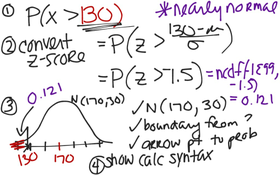 ① P(X > 130) *nearly normal
② convert z-score = P(z > 130-μ/σ)
= P(z > 1.5) = ncdf(-1E99, -1.5)
= 0.121
③ 0.121 N(170,30) ✓ N(170, 30)
✓ boundary from?
✓ arrow pt to prob
130 170
④ show calc syntax